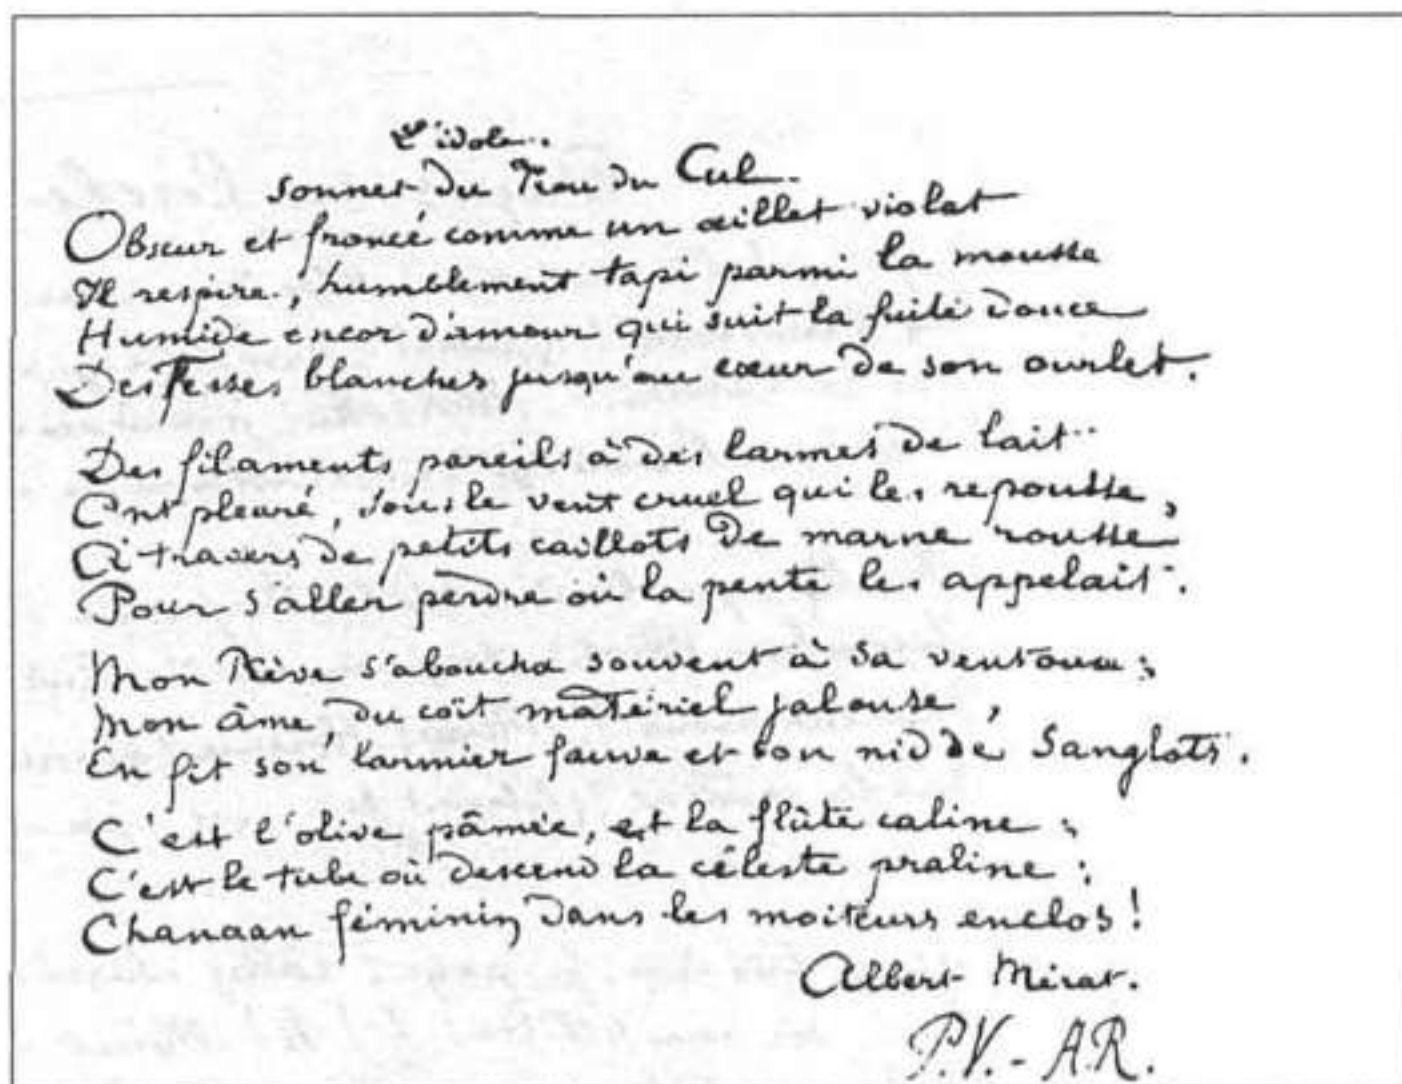 L'idole.
Sonnet du Trou du Cul.
Obscur et froncé comme un œillet violet
Il respire, humblement tapi parmi la mousse
Humide encor d'amour qui suit la fuite douce
Des Fesses blanches jusqu'au cœur de son ourlet.
Des filaments pareils à des larmes de lait
Ont pleuré, sous le vent cruel qui les repousse,
À travers de petits caillots de marne rousse
Pour s'aller perdre où la pente les appelait.
Mon Rêve s'aboucha souvent à sa ventouse ;
Mon âme, du coït matériel jalouse,
En fit son larmier fauve et son nid de sanglots.
C'est l'olive pâmée, et la flûte caline ;
C'est le tube où descend la céleste praline :
Chanaan féminin dans les moiteurs enclos !
Albert Mérat.
P.V. - A.R.